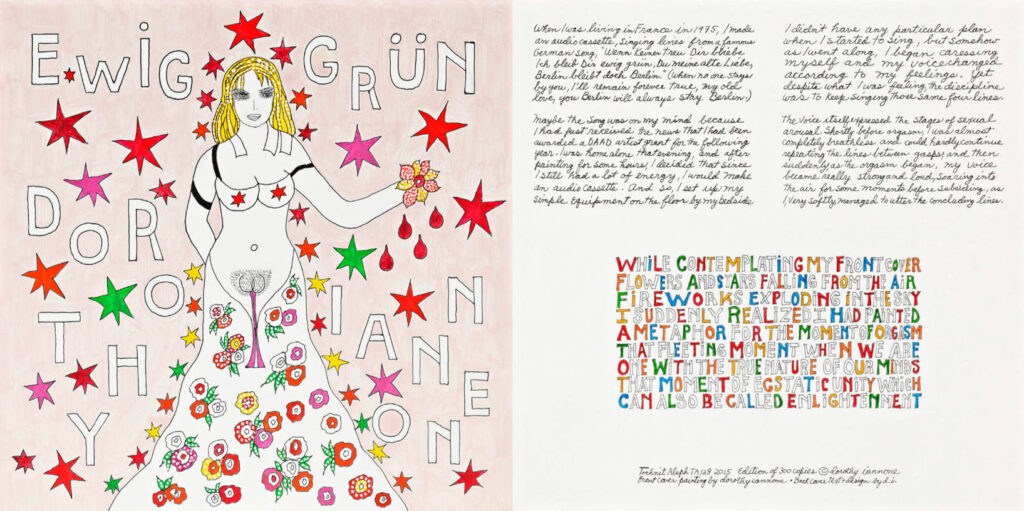 EWIG GRÜN
DOROTHY
IANNONE
When I was living in France in 1975, I made
an audio cassette, singing lines from a famous
German song, "Wenn keiner treu Dir bliebe
Ich bleib Dir ewig grün, Du meine alte Liebe,
Berlin bleibt doch Berlin." (When no one stays
by you, I'll remain forever true, my old
love, you Berlin will always stay Berlin.)
Maybe the song was on my mind because
I had just received the news that I had been
awarded a DAAD artist grant for the following
year. I was home alone that evening, and after
painting for some hours, I decided that since
I still had a lot of energy, I would make
an audio cassette. And so, I set up my
simple equipment on the floor by my bedside.
I didn't have any particular plan
when I started to sing, but somehow
as I went along, I began caressing
myself and my voice changed
according to my feelings. Yet
despite what I was feeling, the discipline
was to keep singing those same four lines.
The voice itself expressed the stages of sexual
arousal. Shortly before orgasm, I was almost
completely breathless and could hardly continue
repeating the lines between gasps and then
suddenly as the orgasm began, my voice
became really strong and loud, soaring into
the air for some moments before subsiding, as
I, very softly managed to utter the concluding lines.
WHILE CONTEMPLATING MY FRONT COVER
FLOWERS AND STARS FALLING FROM THE AIR
FIREWORKS EXPLODING IN THE SKY
I SUDDENLY REALIZED I HAD PAINTED
A METAPHOR FOR THE MOMENT OF ORGASM
THAT FLEETING MOMENT WHEN WE ARE
ONE WITH THE TRUE NATURE OF OUR MINDS
THAT MOMENT OF ECSTATIC UNITY WHICH
CAN ALSO BE CALLED ENLIGHTENMENT
Tochnit Aleph TA128 2015 Edition of 300 copies © dorothy iannone
Front cover painting by dorothy iannone • Back cover text + design by d.i.